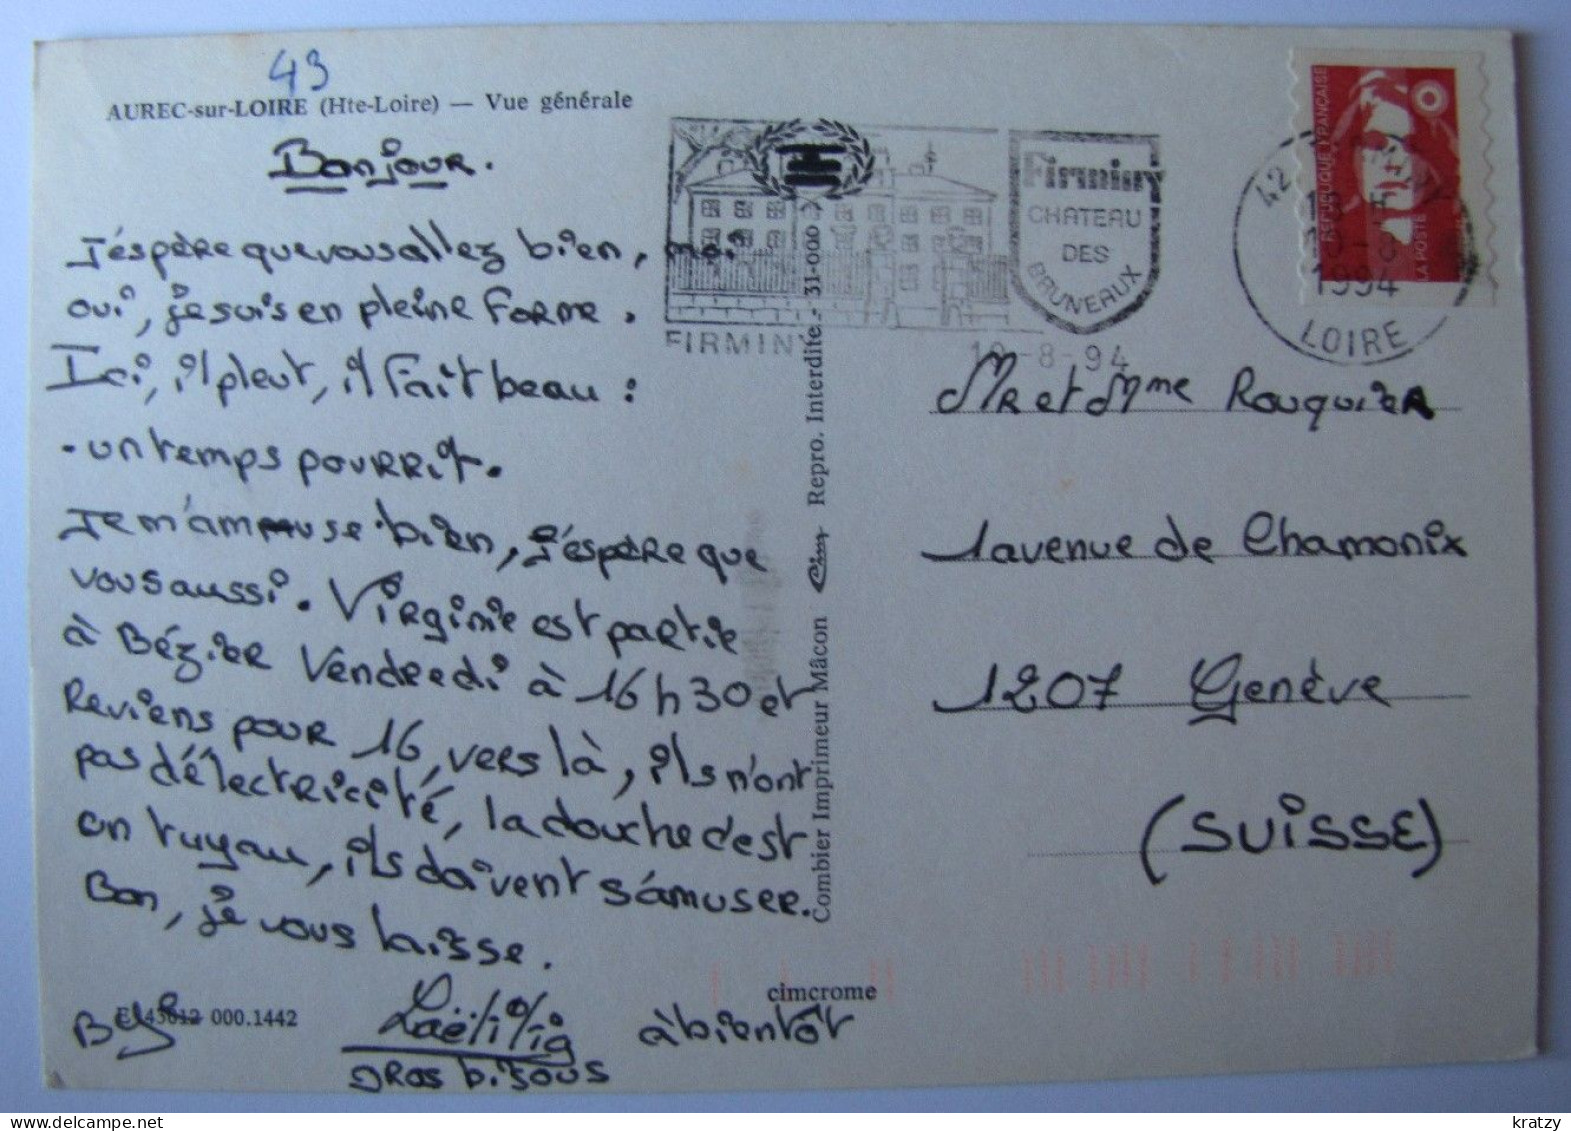 43
AUREC-sur-LOIRE (Hte-Loire) — Vue générale
Bonjour.
J'éspère que vous allez bien, moi
oui, je suis en pleine forme.
Ici, il pleut, il fait beau :
- un temps pourrit.
Je m'amuse bien, j'éspère que
vous aussi. Virginie est partie
à Bézier Vendredi à 16 h 30 et
Reviens pour 16, vers là, ils n'ont
pas d'électricité, la douche c'est
un tuyau, ils doivent s'amuser.
Bon, je vous laisse.
000.1442
Bye
Laëtitia
à bientôt
gros bisous
cimcrome
Combier Imprimeur Mâcon Cim Repro. Interdite - 31-000
FIRMINY
Firminy
CHATEAU
DES
BRUNEAUX
10-8-94
42
1994
LOIRE
REPUBLIQUE FRANÇAISE
LA POSTE
Mr et Mme Rouquier
1 avenue de Chamonix
1207 Genève
(SUISSE)
kratzy